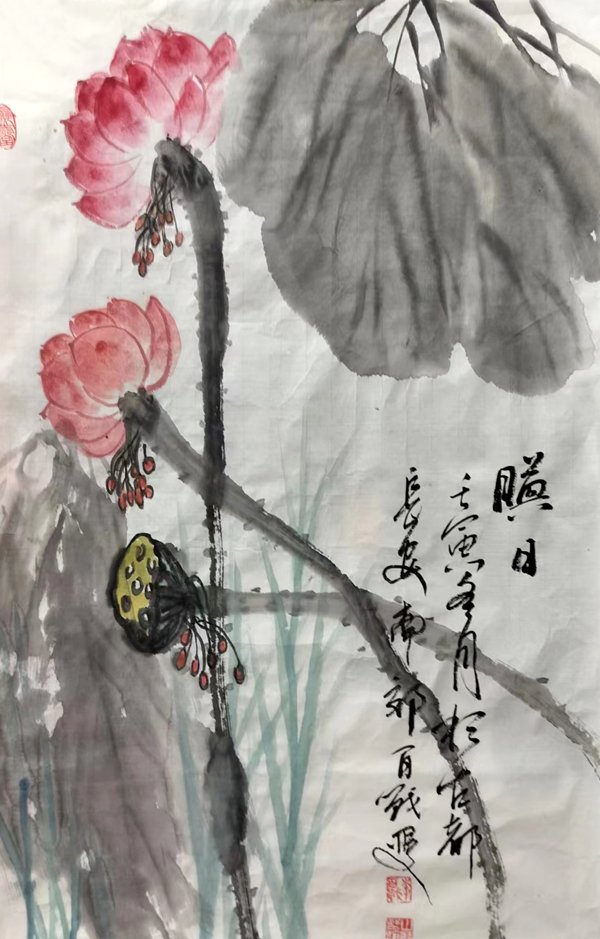 暎日
壬寅冬月於古都
長安南郊百戰叟